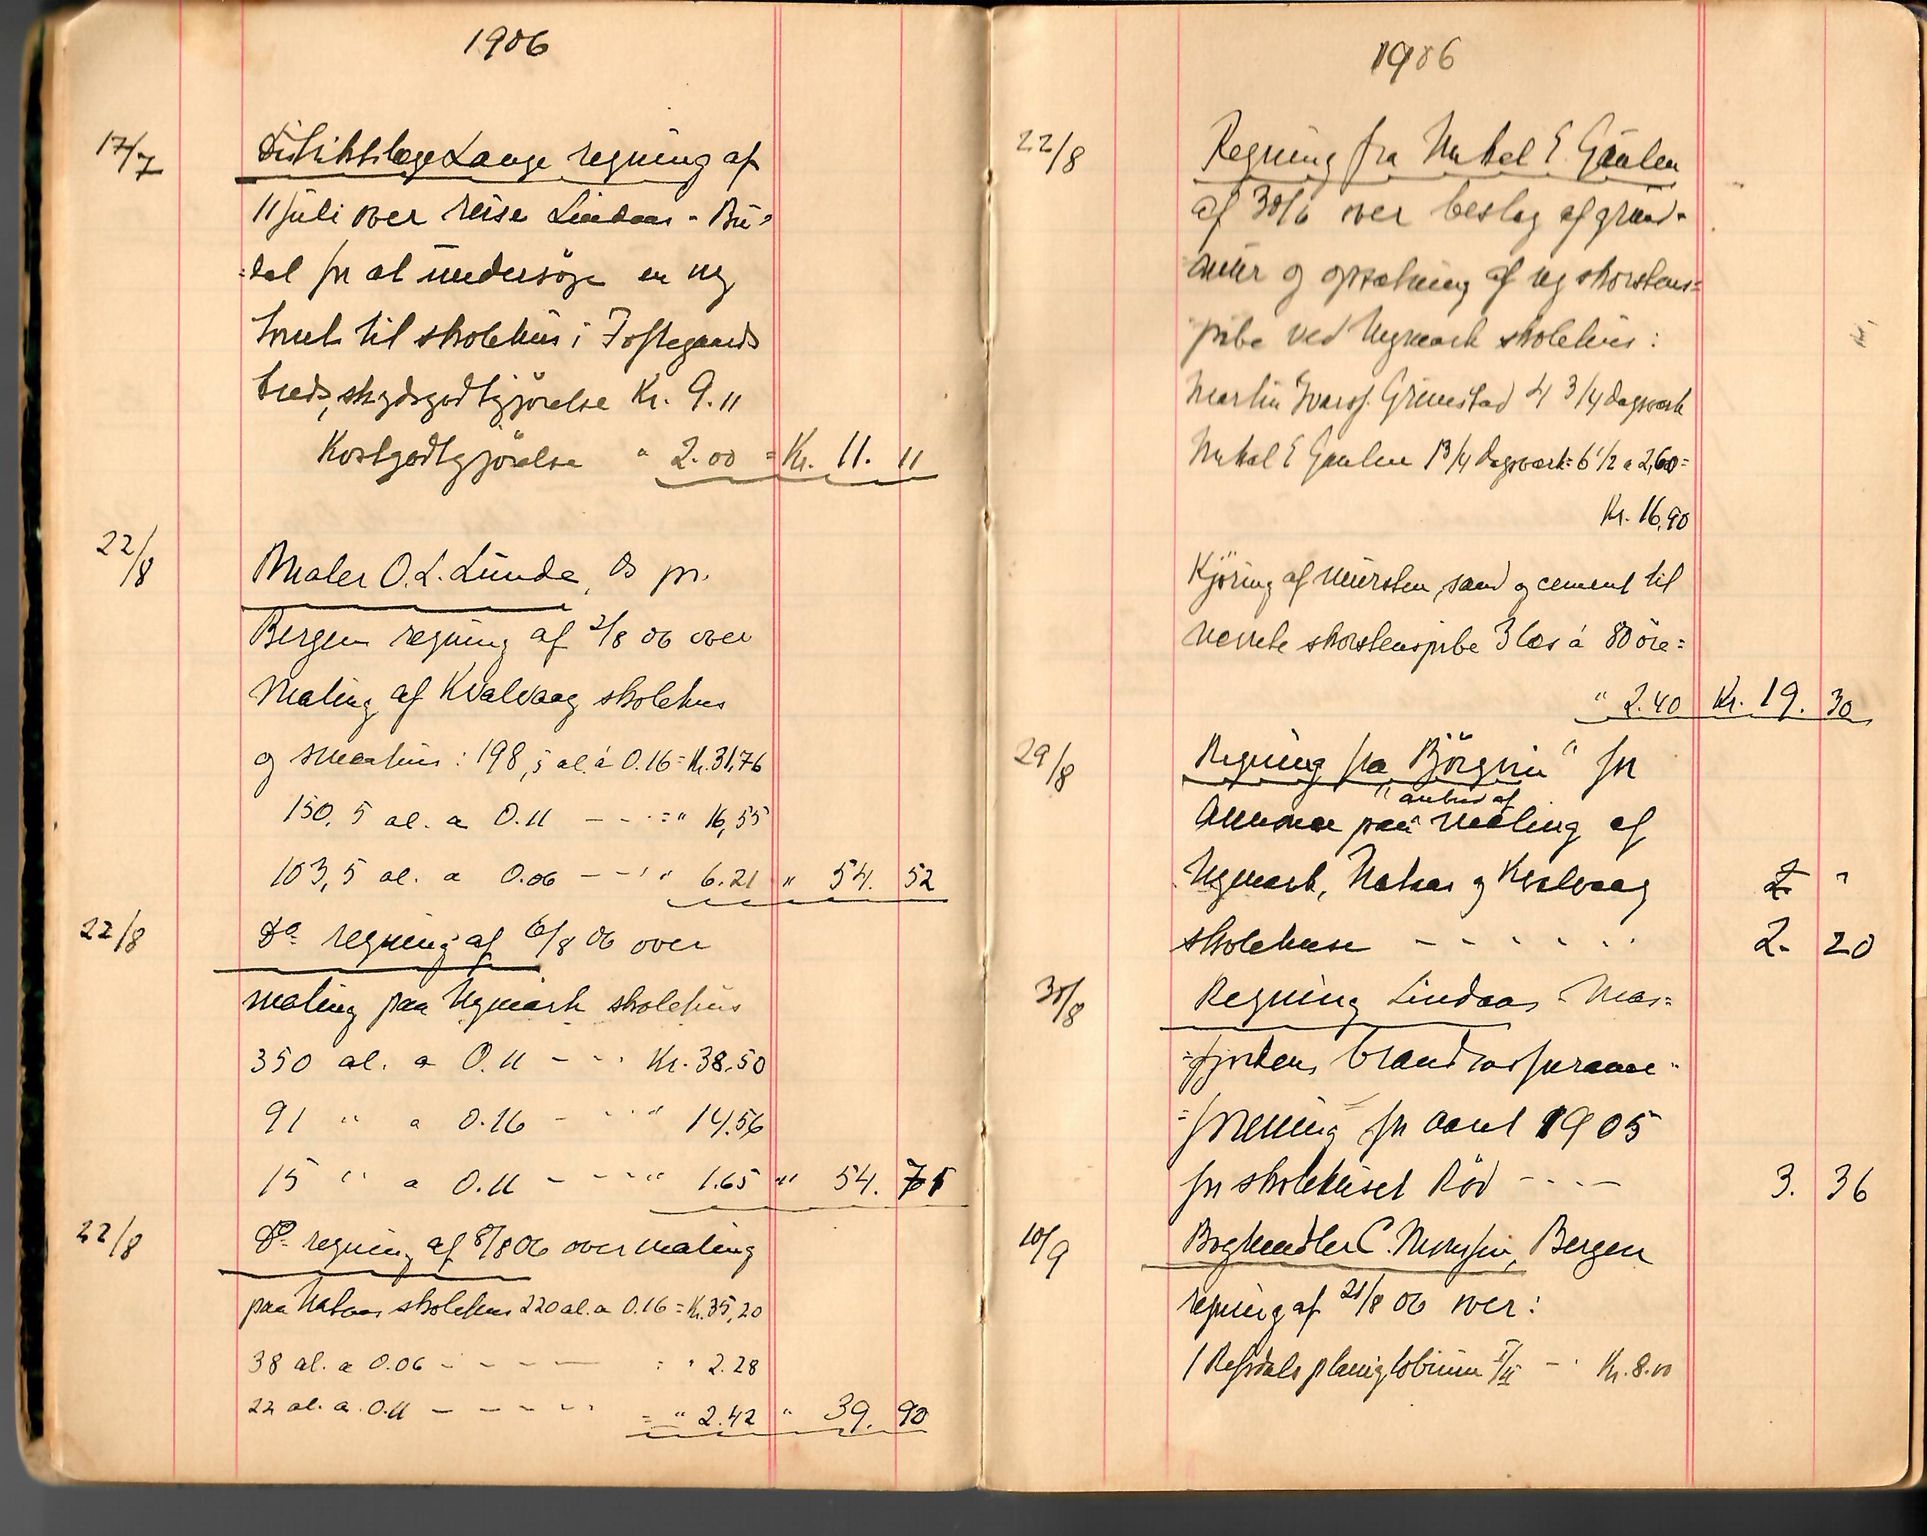 1906
17/7 Distriktslæge Lange regning af
11 juli over reise Lindaas - Bu=
=dal for at undersöge en ny
tomt til skolehus i Fosstegaards
kreds, skydsgodtgjörelse Kr. 9.11
Kostgodtgjörelse " 2.00 = Kr. 11. 11
22/8 Maler O. L. Lunde, Os pr.
Bergen regning af 2/8 06 over
maling af Kvalvaag skolehus
og smaahus: 198,5 al. á 0.16 = Kr. 31,76
150,5 al. a 0.11 - - - = " 16,55
103,5 al. a 0.06 - - - " 6.21 " 54. 52
22/8 Do regning af 6/8 06 over
maling paa Nymark skolehus
350 al. a 0.11 - - - Kr. 38.50
91 " a 0.16 - - - " 14.56
15 " a 0.11 - - - " 1.65 " 54. 71
22/8 Do regning af 8/8 06 over maling
paa Nataas skolehus 220 al. a 0.16 = Kr. 35,20
38 al. a 0.06 - - - - : " 2.28
22 al. a 0.11 - - - - - = " 2.42 " 39. 90
1906
22/8 Regning fra Mikal E. Gaulen
af 30/6 over beslag af grund-
muur og opsætning af ny skorstens=
pibe ved Nymark skolehus:
Martin Ivarsf. Grimstad 4 3/4 dagsværk
Mikal E Gaulen 1 3/4 dagsværk = 6 1/2 a 2,60 =
Kr. 16,90
Kjöring af mursten, sand og cement til
nævnte skorstenspibe 3 læs á 80 öre =
" 2.40 Kr. 19. 30
29/8 Regning fra "Björgvin" for
anbud af
Annonce paa maling af
Nymark, Nataas og Kvalvaag 2 "
skolehuse - - - - - - 2. 20
30/8 Regning Lindaas - Mas=
=fjordens brandassurance-
=forening for aaret 1905
for skolehuset Röd - - - - 3. 36
10/9 Boghandler C. Monsen, Bergen
regning af 21/8 06 over:
1 Refsdals planiglobium I/II - - Kr. 8.00